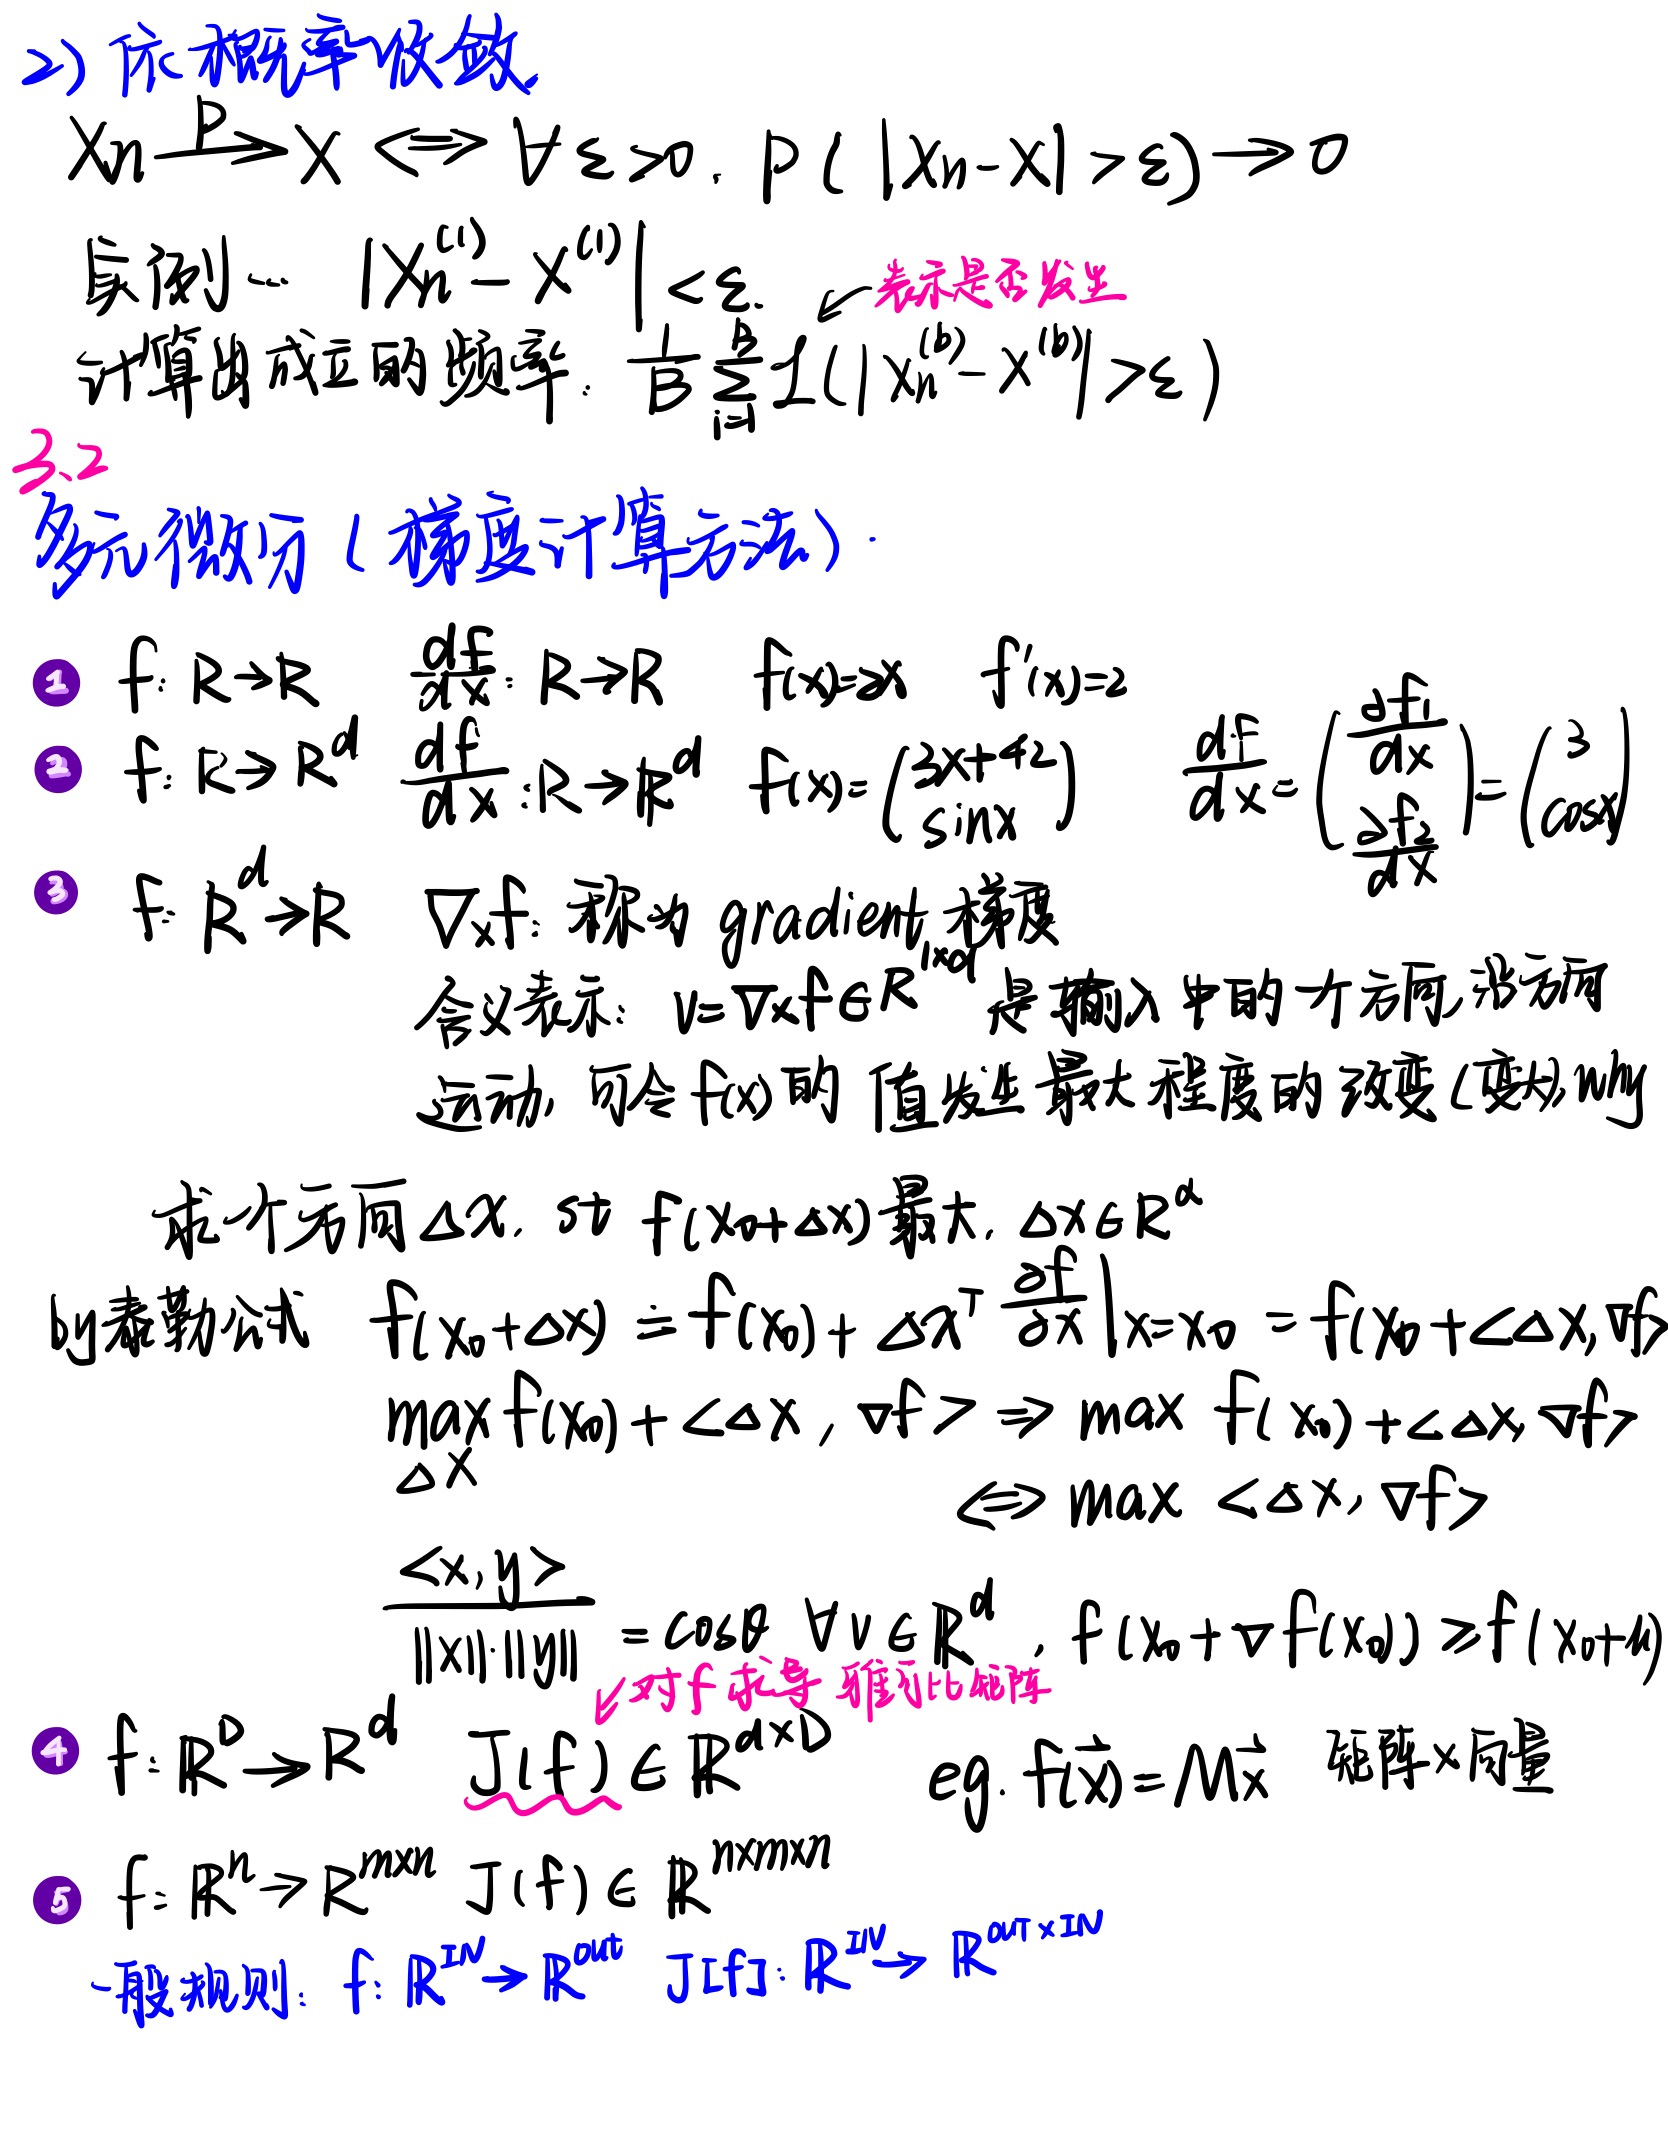 2) 依概率收敛.
Xn —P→ X ⟺ ∀ε>0. P(|Xn-X|>ε)→0
实例... |Xn⁽¹⁾ - X⁽¹⁾| < ε.
表示是否发生
计算出成立的频率: 1/B Σ_{i=1}^{B} 1(|Xn⁽ᵇ⁾ - X⁽ᵇ⁾|>ε)
3、2
多元微分(梯度计算方法).
1 f: R→R df/dx: R→R f(x)=2x f'(x)=2
2 f: R→R^d df/dx: R→R^d f(x)=(3x+42 sinx) df/dx=(∂f1/dx ∂f2/dx)=(3 cosx)
3 f: R^d→R ∇xf: 称为 gradient, 梯度
含义表示: V=∇xf∈R^{1×d} 是输入中的一个方向, 沿方向
运动, 可令f(x)的值发生最大程度的改变(变大), why
求一个方向Δx. st f(x0+Δx)最大. Δx∈R^d
by泰勒公式 f(x0+Δx) = f(x0) + Δx^T ∂f/∂x|x=x0 = f(x0 + <Δx, ∇f>
max_{Δx} f(x0) + <Δx, ∇f> ⇒ max f(x0) + <Δx, ∇f>
⟺ max <Δx, ∇f>
<x, y>/||x||·||y|| = cosθ ∀v∈R^d, f(x0+∇f(x0)) ≥ f(x0+u)
对f求导 雅可比矩阵
4 f: R^D→R^d J(f)∈R^{d×D} eg. f(x⃗)=Mx⃗ 矩阵×向量
5 f: R^n→R^{m×n} J(f)∈R^{n×m×n}
一般规则: f: R^{IN}→R^{out} J[f]: R^{IN}→R^{OUT×IN}